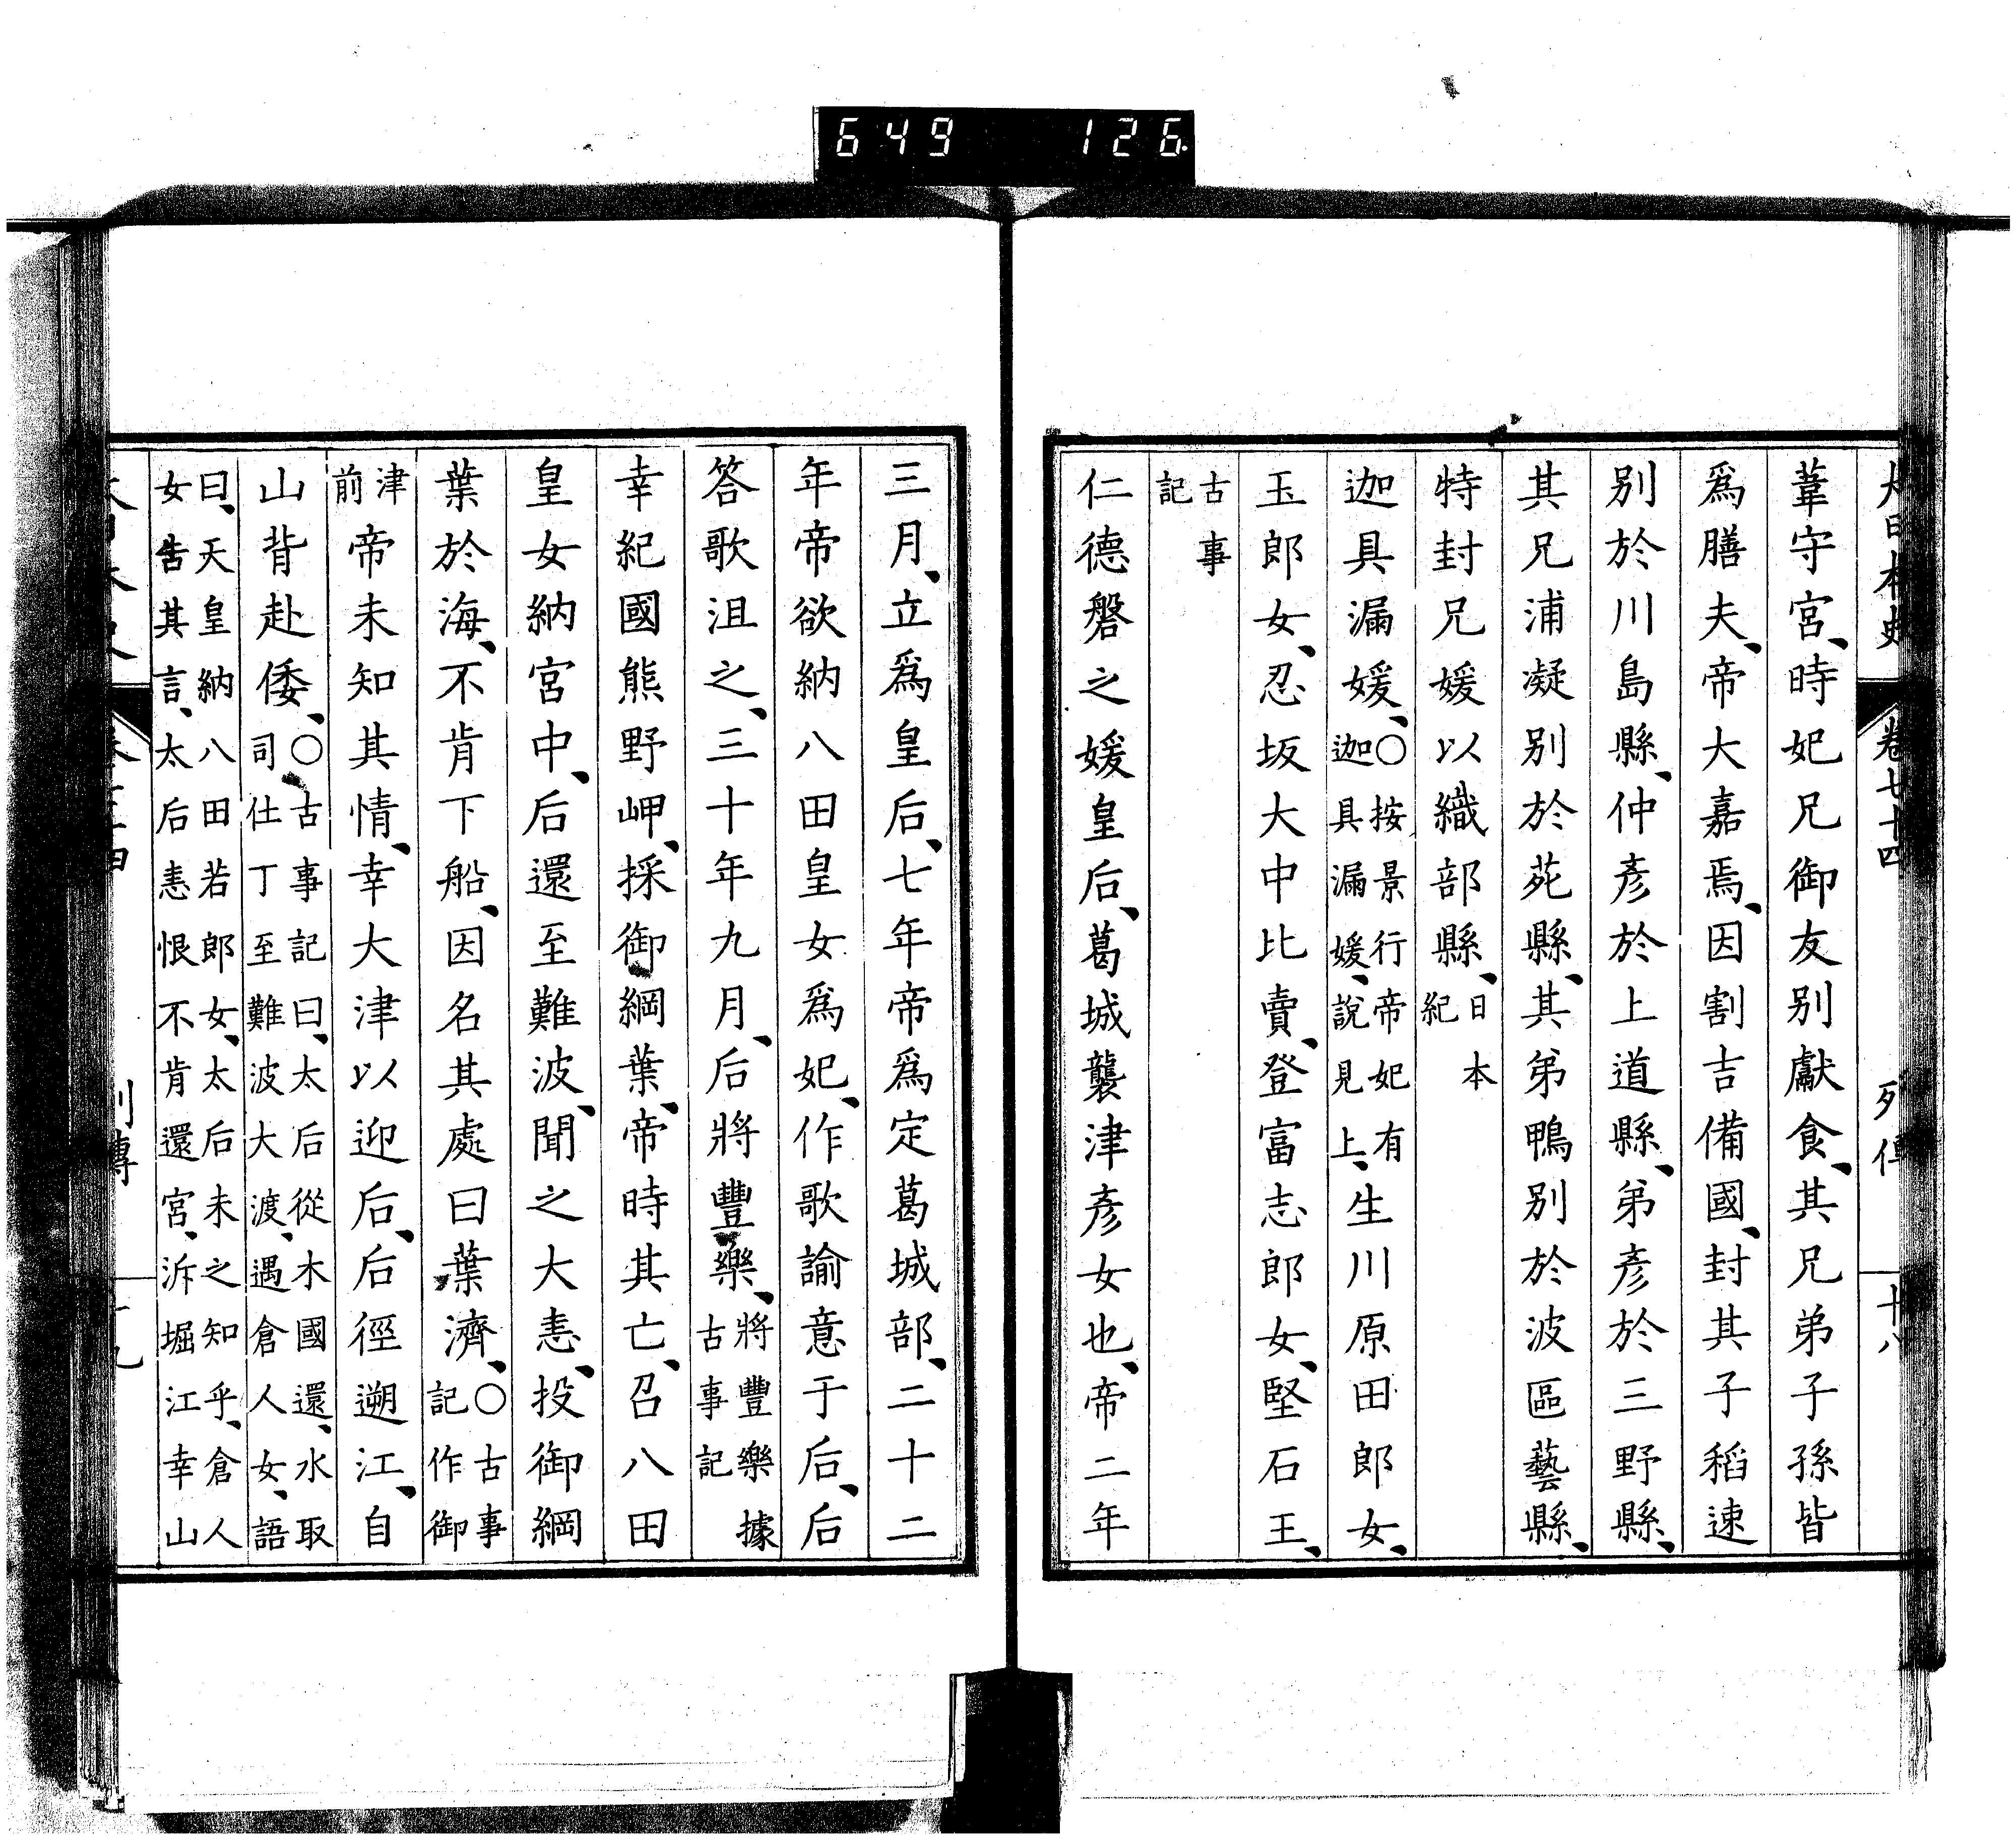 649 126
大日本史 卷七十四 列傳 十八
葦守宮、時妃兄御友別獻食、其兄弟子孫皆
爲膳夫、帝大嘉焉、因割吉備國、封其子稻速
別於川島縣、仲彥於上道縣、弟彥於三野縣、
其兄浦凝別於苑縣、其弟鴨別於波區藝縣、
特封兄媛以織部縣、日本紀
迦具漏媛、〇按景行帝妃有迦具漏媛、說見上、生川原田郎女、
玉郎女、忍坂大中比賣、登富志郎女、堅石王、
古事記
仁德磐之媛皇后、葛城襲津彥女也、帝二年
三月、立爲皇后、七年帝爲定葛城部、二十二
年帝欲納八田皇女爲妃、作歌諭意于后、后
答歌沮之、三十年九月、后將豐樂、將豐樂據古事記
幸紀國熊野岬、採御綱葉、帝時其亡、召八田
皇女納宮中、后還至難波、聞之大恚、投御綱
葉於海、不肯下船、因名其處曰葉濟、〇古事記作御
津前帝未知其情、幸大津以迎后、后徑遡江、自
山背赴倭、〇古事記曰、太后從木國還、水取司仕丁至難波大渡、遇倉人女、語
曰、天皇納八田若郎女、太后未之知乎、倉人女告其言、太后恚恨不肯還宮、泝堀江幸山